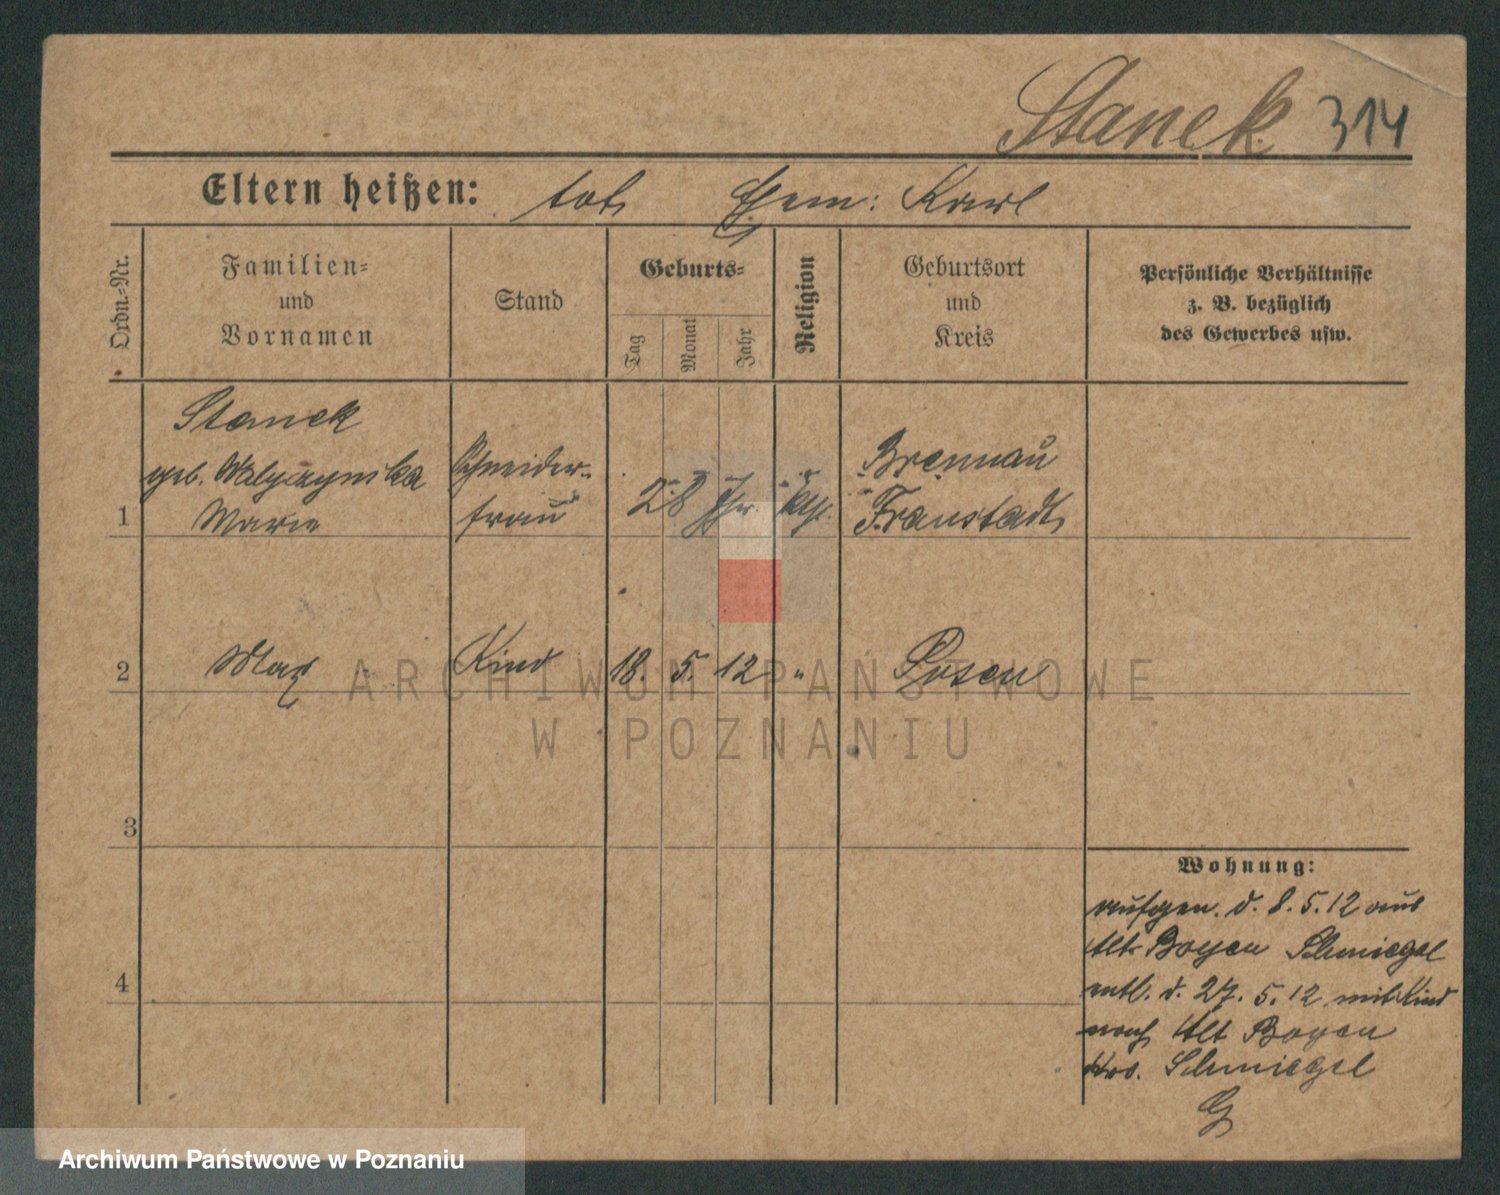 Stanek 314
Eltern heißen: tot Ehem: Karl
Ordn.=Nr.
Familien=
und
Vornamen
Stand
Geburts=
Tag
Monat
Jahr
Religion
Geburtsort
und
Kreis
Persönliche Verhältnisse
z. B. bezüglich
des Gewerbes usw.
1
Stanek
geb.
Marie
Schneider-
frau
28 Jhr.
kth.
Brennau
Fraustadt
2 Max Kind 18. 5. 12 " Posen
3
4
Wohnung:
aufgen. d. 8. 5. 12 aus
Alt Boyen Schmiegel
entl. d. 27. 5. 12 mit Kind
nach Alt Boyen
Krs. Schmiegel
G
ARCHIWUM PAŃSTWOWE
W POZNANIU
Archiwum Państwowe w Poznaniu